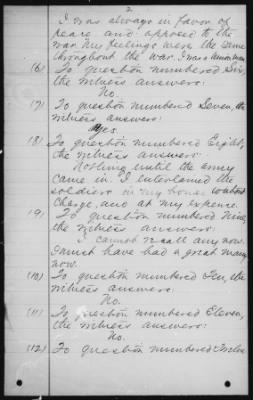 2
I was always in favor of
peace and opposed to the
war. My feelings were the same
throughout the war. I was a Union man.
(6) To question numbered Six,
the witness answers:
No.
(7) To question numbered Seven, the
witness answers:
Yes
(8) To question numbered Eight,
the witness answers:
Nothing until the army
came in. I entertained the
soldiers in my house without
charge, and at my expense.
(9) To question numbered Nine,
the witness answers:
I cannot recall any now.
I must have had a great many
now.
(10) To question numbered Ten, the
witness answers:
No.
(11) To question numbered Eleven,
the witness answers:
No.
(12) To question numbered Twelve